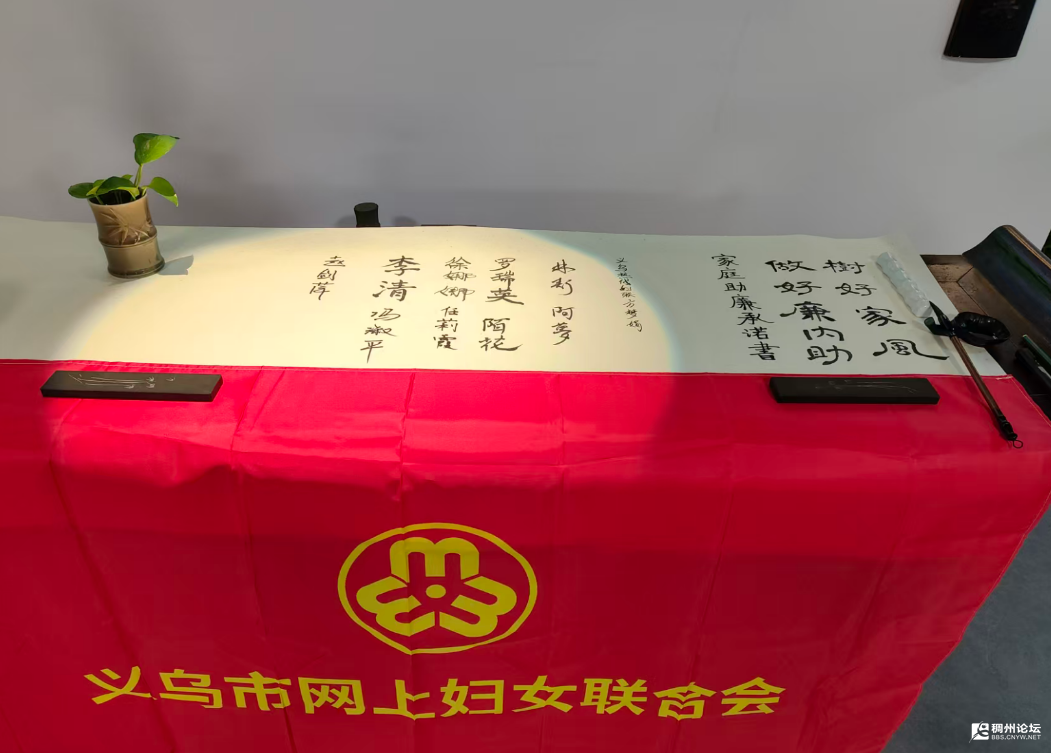 樹好家風
做好廉内助
家庭助廉承诺書
林彩 阿夢
罗瑞英 陌花
徐娜娜 任莉霞
李清 冯淑平
赵剑萍
义乌市网上妇女联合会
稠州论坛
BBS.CNYW.NET